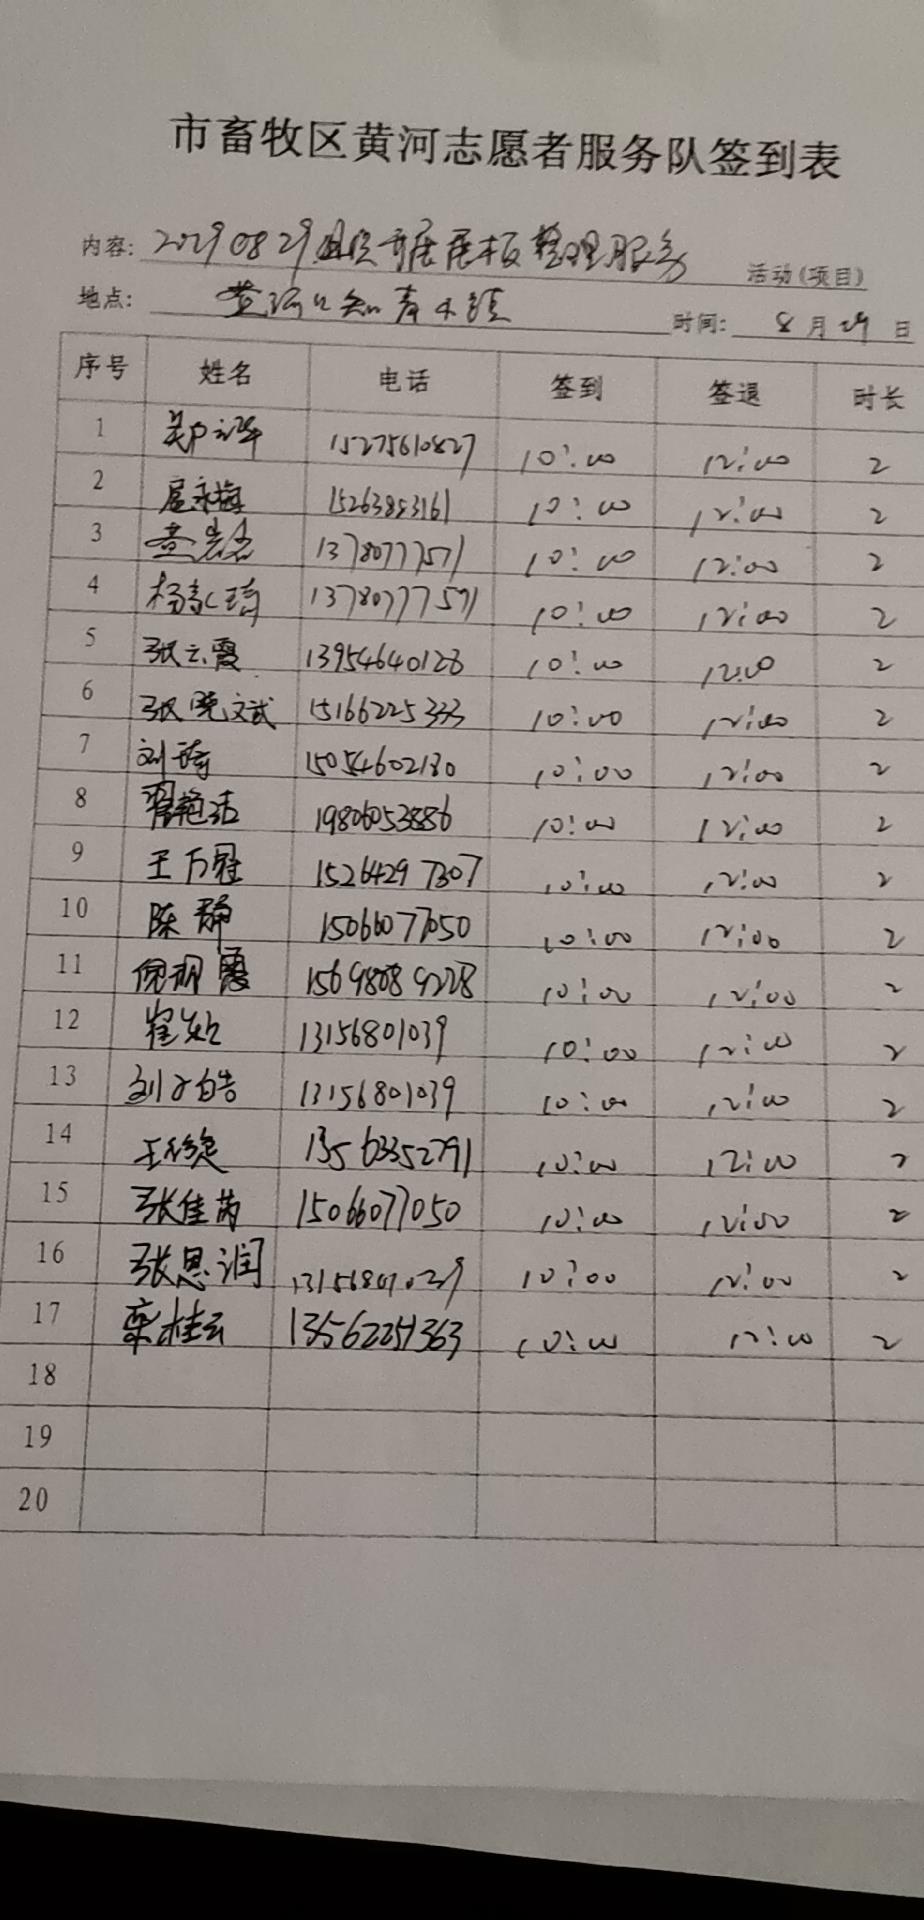 市畜牧区黄河志愿者服务队签到表
内容: 20190829 展板整理服务 活动(项目)
地点: 黄河口知青小镇 时间: 8月29日
序号 姓名 电话 签到 签退 时长
1 15275610827 10:00 12:00 2
2 扈永梅 15263853161 10:00 12:00 2
3 13780777571 10:00 12:00 2
4 13780777571 10:00 12:00 2
5 张云霞 13954640128 10:00 12:00 2
6 张晓斌 15166225333 10:00 12:00 2
7 刘琦 15054602180 10:00 12:00 2
8 翟艳洁 19806053886 10:00 12:00 2
9 王万冠 15264297307 10:00 12:00 2
10 陈静 15066077050 10:00 12:00 2
11 倪明霞 15698089228 10:00 12:00 2
12 13156801039 10:00 12:00 2
13 刘子皓 13156801039 10:00 12:00 2
14 13563352791 10:00 12:00 2
15 张佳芮 15066077050 10:00 12:00 2
16 张恩润 13156801039 10:00 12:00 2
17 栾桂云 13562251363 10:00 12:00 2
18
19
20